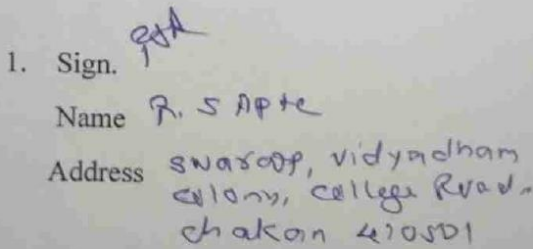 1. Sign.
Name R. S Apte
Address swaroop, vidyadham
colony, college Road.
chakan 410501